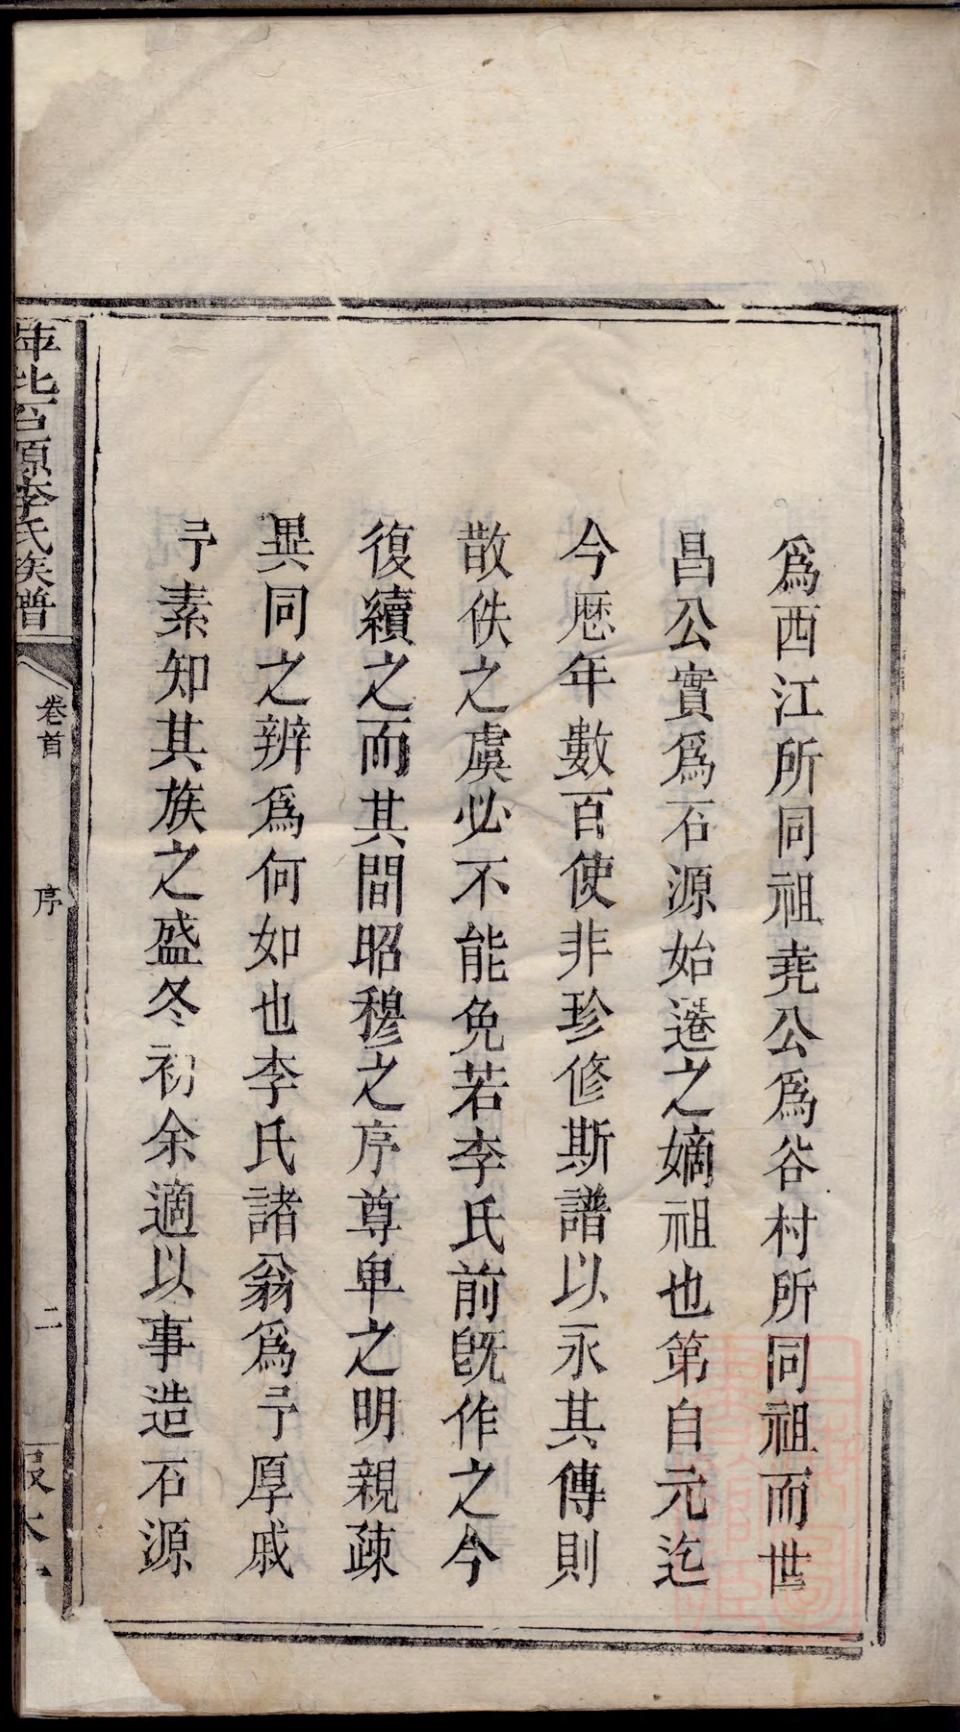 爲西江所同祖堯公爲谷村所同祖而世
昌公實爲石源始遷之嫡祖也第自元迄
今厯年數百使非珍修斯譜以永其傳則
散佚之虞必不能免若李氏前旣作之今
復續之而其間昭穆之序尊卑之明親疎
異同之辨爲何如也李氏諸翁爲予厚戚
予素知其族之盛冬初余適以事造石源
萍北石源李氏族譜
卷首
序
二